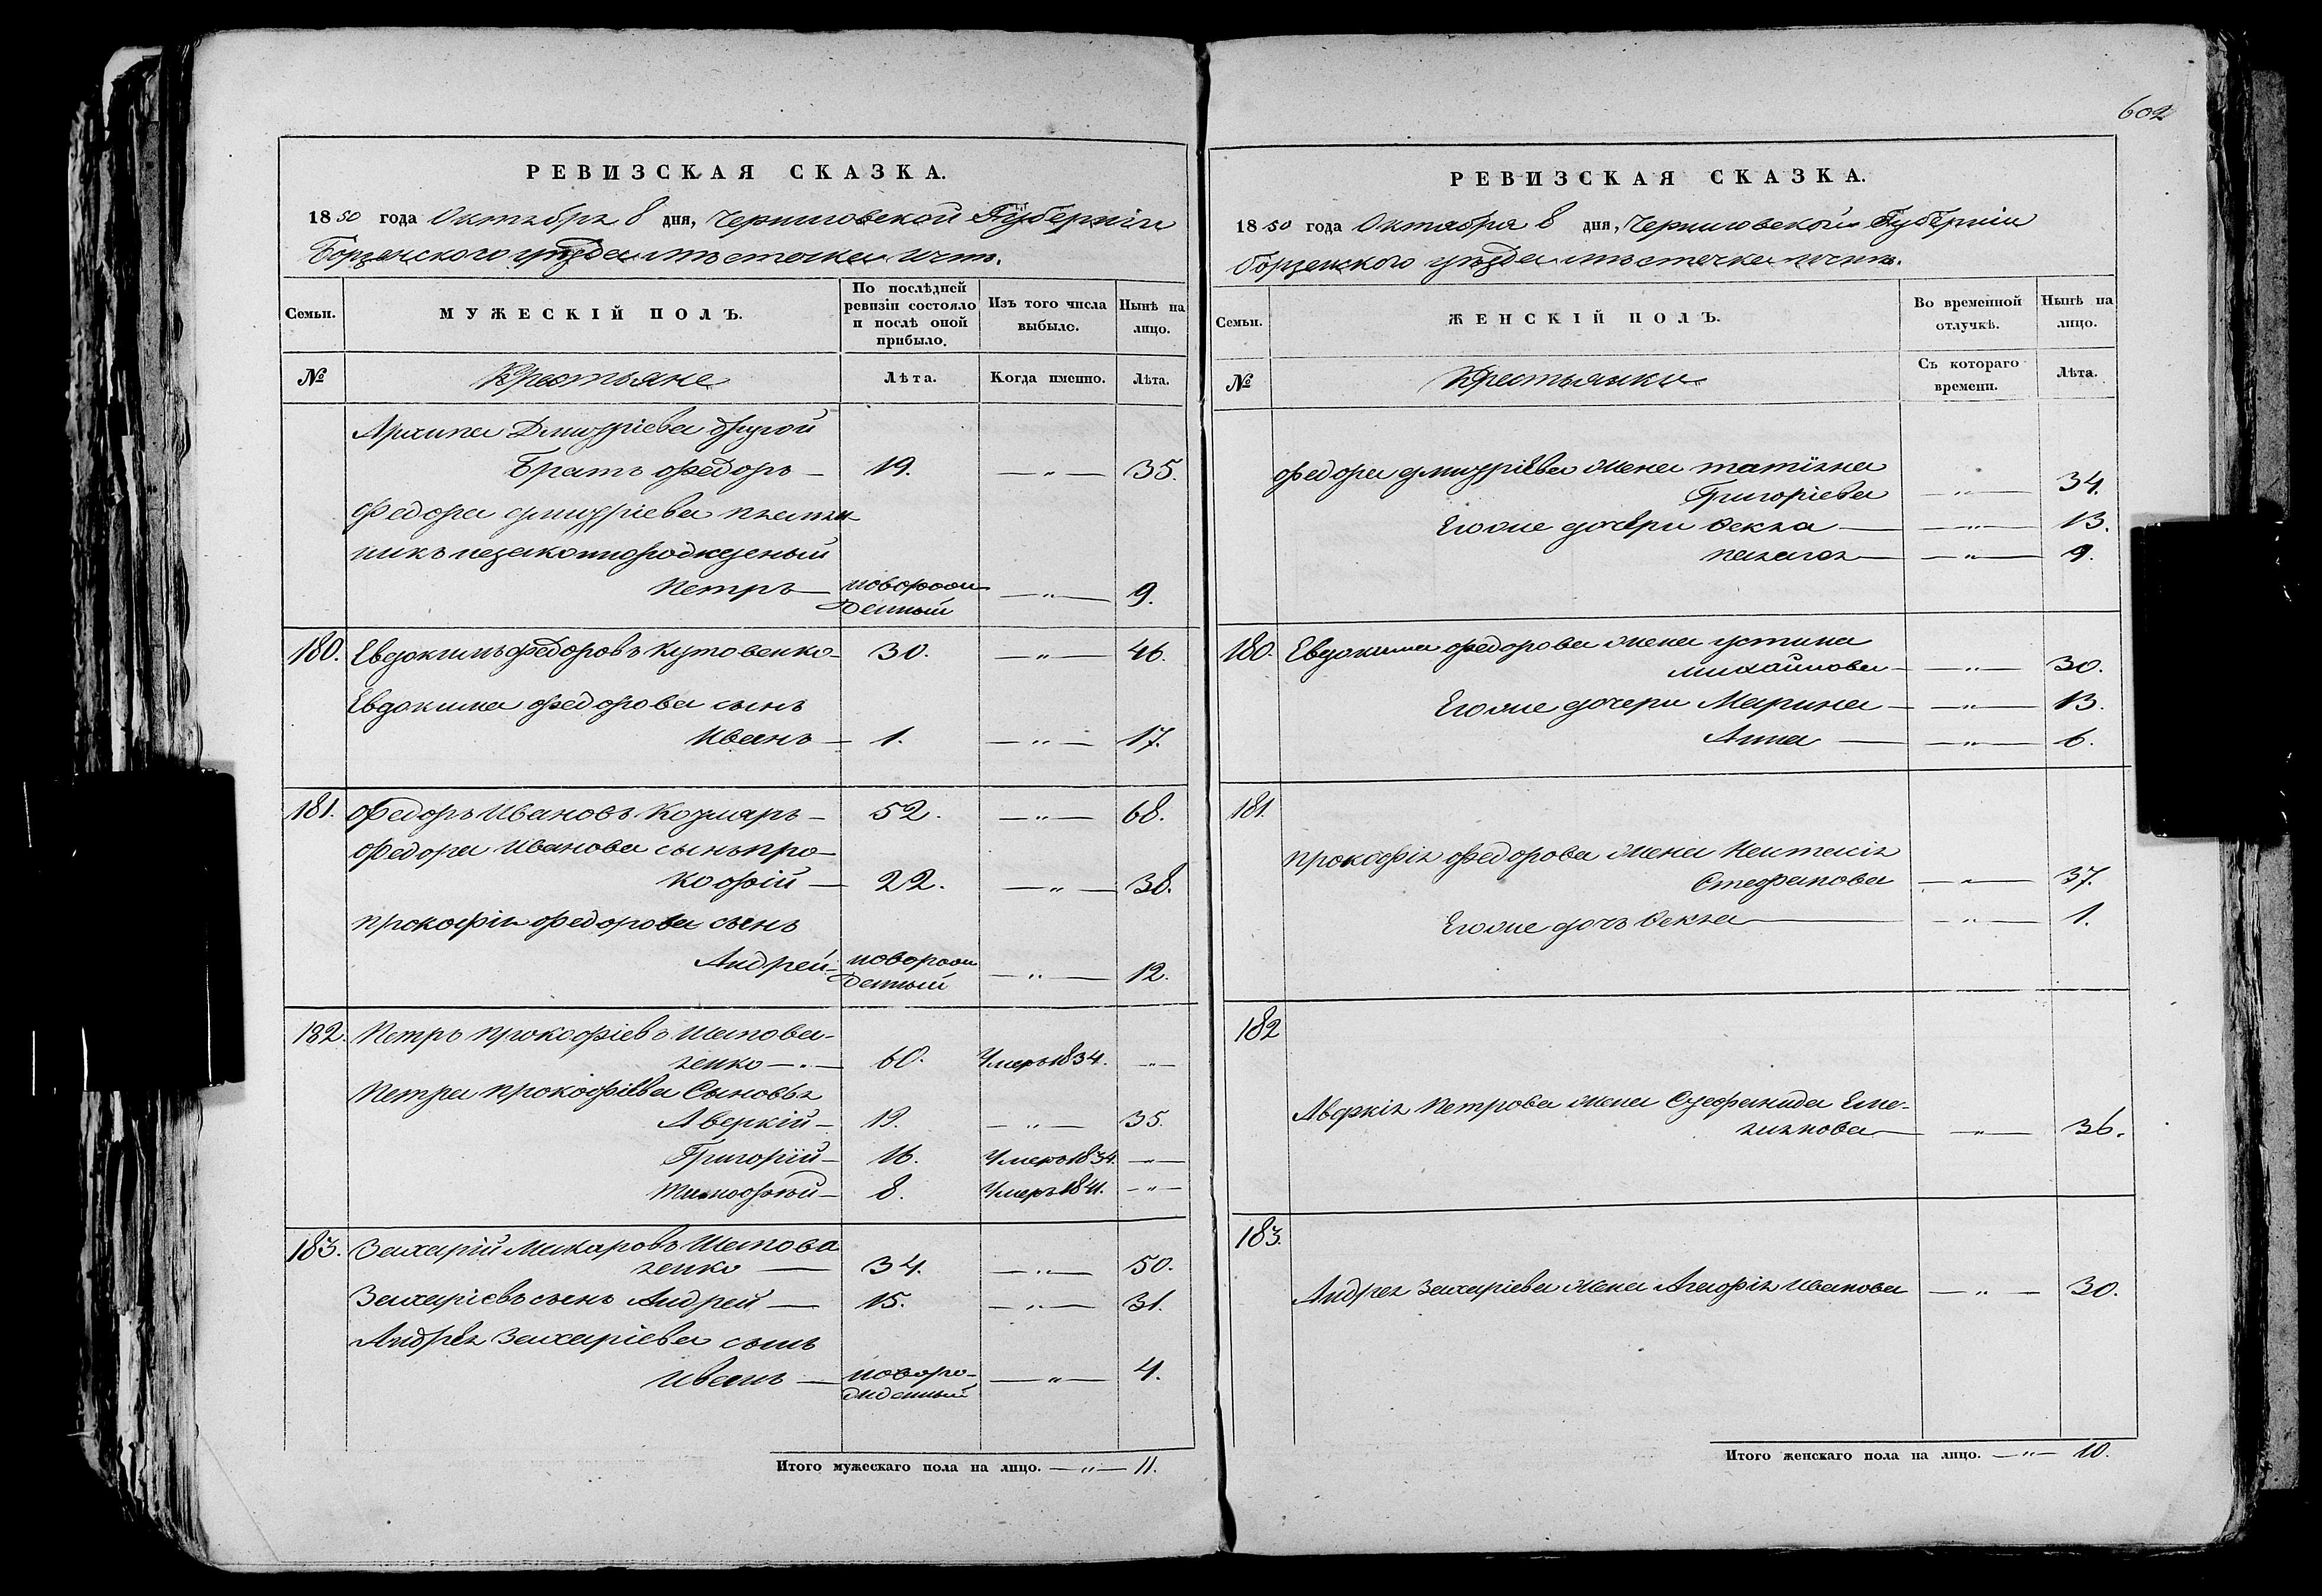 602
РЕВИЗСКАЯ СКАЗКА.
1850 года Октября 8 дня, Черниговской Губерніи
Борзенского уѣзда мѣстечка Ични.
Семьи.
МУЖЕСКІЙ ПОЛЪ.
По послѣдней ревизіи состояло и послѣ оной прибыло.
Изъ того числа выбыло.
Нынѣ на лицо.
№ Крестьяне Лѣта. Когда именно. Лѣта.
Архипа Дмитріева другой
Братъ Федоръ — 19. — „ — 35.
Федора Дмитріева племян
никъ незаконнорожденый
Петръ — новорож — „ — 9.
денный
180. Евдокимъ Федоровъ Кутовенко — 30. — „ — 46.
Евдокима Федорова сынъ
Иванъ — 1. — „ — 17.
181. Федоръ Ивановъ Козмаръ — 52. — „ — 68.
Федора Иванова сынъ Про-
кофій — 22. — „ — 38.
Прокофія Федорова сынъ
Андрей — новорож — „ — 12.
денный
182. Петръ Прокофіевъ Шапова-
ленко — 60. Умеръ 1834. — „ —
Петра Прокофіева Сыновья
Аверкій — 19. — „ — 35.
Григорій — 16. Умеръ 1834. — „ —
Тимофѣй — 8. Умеръ 1841. — „ —
183. Захарій Макаровъ Шапова
ленко — 34. — „ — 50.
Захаріевъ сынъ Андрей — 15. — „ — 31.
Андрея Захаріева сынъ
Иванъ — новоро- — „ — 4.
жденный
Итого мужескаго пола на лицо. — „ — 11.
РЕВИЗСКАЯ СКАЗКА.
1850 года Октября 8 дня, Черниговской Губерніи
Борзенского уѣзда мѣстечка Ични.
Семьи.
ЖЕНСКІЙ ПОЛЪ.
Во временной отлучкѣ.
Нынѣ на лицо.
№ Крестьянки Съ котораго времени. Лѣта.
Федора Дмитріева жена Татіяна
Григоріева — „ — 34.
Его же дочери Фекла — „ — 13.
Палагея — „ — 9.
180. Евдокима Федорова жена Устина
Михайлова — „ — 30.
Его же дочери Марина — „ — 13.
Анна — „ — 6.
181.
Прокофія Федорова жена
Стефанова — „ — 37.
Его же дочь Фекла — „ — 1.
182
Аверкія Петрова жена Стефанида Еме-
льянова — „ — 36.
183.
Андрея Захаріева жена Агафія Иванова — „ — 30.
Итого женскаго пола на лицо. — „ — 10.